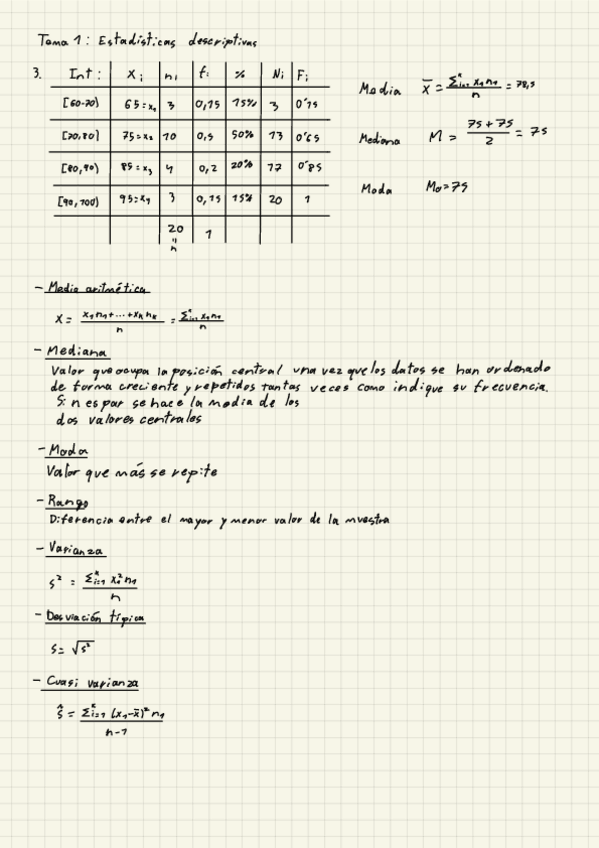 Tema 1: Estadísticas descriptivas
3. Int: Xi ni fi % Ni Fi
[60-70) 65=x1 3 0,15 15% 3 0'15
[70,80) 75=x2 10 0,5 50% 13 0'65
[80,90) 85=x3 4 0,2 20% 17 0'85
[90,100) 95=x4 3 0,15 15% 20 1
20 = n 1
Media x̄ = Σᵏᵢ₌₁ x₁n₁ / n = 78,5
Mediana M = (75+75) / 2 = 75
Moda Mo=75
- Media aritmética
X = (x₁n₁+...+xₖnₖ) / n = Σᵏᵢ₌₁ x₁n₁ / n
- Mediana
Valor que ocupa la posición central una vez que los datos se han ordenado
de forma creciente y repetidos tantas veces como indique su frecuencia.
Si n es par se hace la media de los
dos valores centrales
- Moda
Valor que más se repite
- Rango
Diferencia entre el mayor y menor valor de la muestra
- Varianza
s² = Σᵏᵢ₌₁ x₁² n₁ / n
- Desviación típica
s = √s²
- Cuasi varianza
ŝ = Σᵏᵢ₌₁ (x₁-x̄)² n₁ / n-1